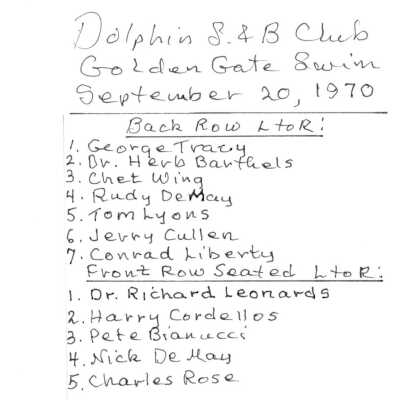 Dolphin S. & B Club
Golden Gate Swim
September 20, 1970
Back Row L to R:
1. George Tracy
2. Dr. Herb Barthels
3. Chet Wing
4. Rudy DeMay
5. Tom Lyons
6. Jerry Cullen
7. Conrad Liberty
Front Row Seated L to R:
1. Dr. Richard Leonards
2. Harry Cordellos
3. Pete Bianucci
4. Nick De May
5. Charles Rose